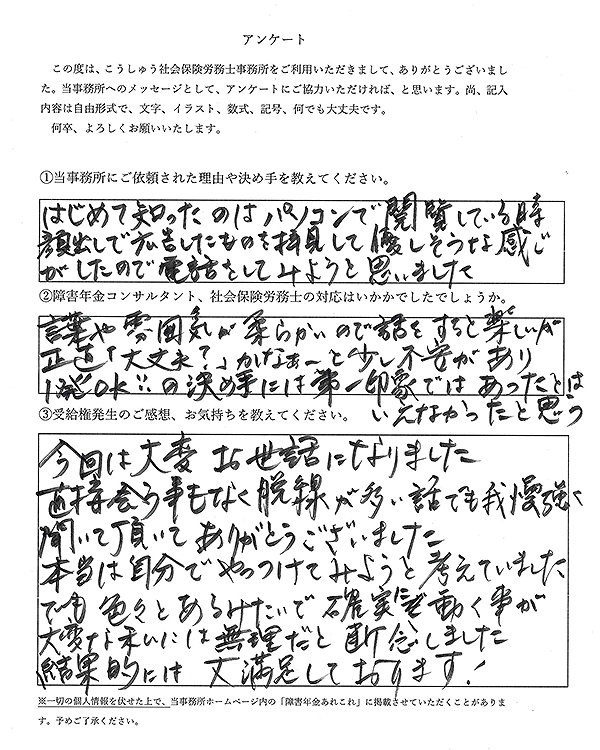 アンケート
この度は、こうしゅう社会保険労務士事務所をご利用いただきまして、ありがとうございまし
た。当事務所へのメッセージとして、アンケートにご協力いただければ、と思います。尚、記入
内容は自由形式で、文字、イラスト、数式、記号、何でも大丈夫です。
何卒、よろしくお願いいたします。
①当事務所にご依頼された理由や決め手を教えてください。
はじめて知ったのはパソコンで閲覧している時
顔出しで広告したものを拝見して優しそうな感じ
がしたので電話をしてみようと思いました
②障害年金コンサルタント、社会保険労務士の対応はいかかでしたでしょうか。
言葉や雰囲気が柔らかいので話をすると楽しいが
正直「大丈夫?」かなぁ〜と少し不安があり
1発OK!!の決め手には第一印象ではあったとは
いえなかったと思う
③受給権発生のご感想、お気持ちを教えてください。
今回は大変お世話になりました
直接会う事もなく脱線が多い話でも我慢強く
聞いて頂いてありがとうございました
本当は自分でやつけてみようと考えていました
でも色々とあるみたいで確実に動く事が
大変な私には無理だと断念しました
結果的には大満足しております!
※一切の個人情報を伏せた上で、当事務所ホームページ内の「障害年金あれこれ」に掲載させていただくことがありま
す。予めご了承ください。